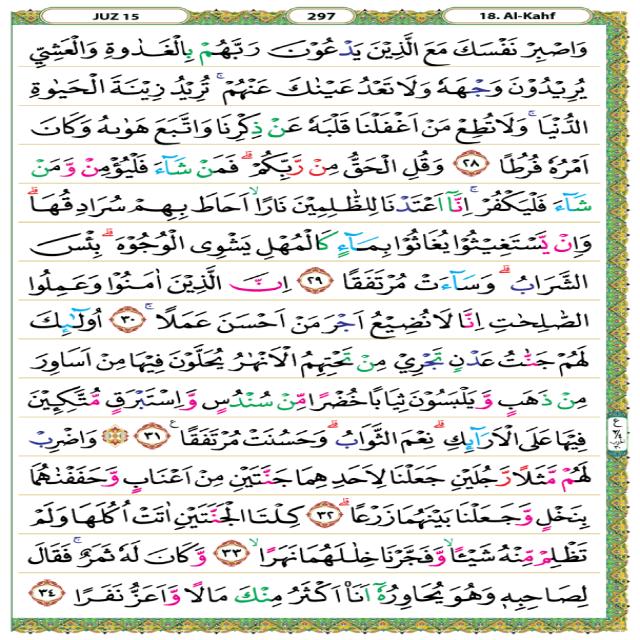 JUZ 15 297 18. Al-Kahf
وَاصْبِرْ نَفْسَكَ مَعَ الَّذِيْنَ يَدْعُوْنَ رَبَّهُمْ بِالْغَدٰوةِ وَالْعَشِيِّ
يُرِيْدُوْنَ وَجْهَهٗ وَلَا تَعْدُ عَيْنٰكَ عَنْهُمْۚ تُرِيْدُ زِيْنَةَ الْحَيٰوةِ
الدُّنْيَاۚ وَلَا تُطِعْ مَنْ اَغْفَلْنَا قَلْبَهٗ عَنْ ذِكْرِنَا وَاتَّبَعَ هَوٰىهُ وَكَانَ
اَمْرُهٗ فُرُطًا ٢٨ وَقُلِ الْحَقُّ مِنْ رَّبِّكُمْۗ فَمَنْ شَاۤءَ فَلْيُؤْمِنْ وَّمَنْ
شَاۤءَ فَلْيَكْفُرْۚ اِنَّآ اَعْتَدْنَا لِلظّٰلِمِيْنَ نَارًاۙ اَحَاطَ بِهِمْ سُرَادِقُهَاۗ
وَاِنْ يَّسْتَغِيْثُوْا يُغَاثُوْا بِمَاۤءٍ كَالْمُهْلِ يَشْوِى الْوُجُوْهَۗ بِئْسَ
الشَّرَابُۗ وَسَاۤءَتْ مُرْتَفَقًا ٢٩ اِنَّ الَّذِيْنَ اٰمَنُوْا وَعَمِلُوا
الصّٰلِحٰتِ اِنَّا لَا نُضِيْعُ اَجْرَ مَنْ اَحْسَنَ عَمَلًاۚ ٣٠ اُولٰۤىِٕكَ
لَهُمْ جَنّٰتُ عَدْنٍ تَجْرِيْ مِنْ تَحْتِهِمُ الْاَنْهٰرُ يُحَلَّوْنَ فِيْهَا مِنْ اَسَاوِرَ
مِنْ ذَهَبٍ وَّيَلْبَسُوْنَ ثِيَابًا خُضْرًا مِّنْ سُنْدُسٍ وَّاِسْتَبْرَقٍ مُّتَّكِـِٕيْنَ
فِيْهَا عَلَى الْاَرَاۤىِٕكِۗ نِعْمَ الثَّوَابُۗ وَحَسُنَتْ مُرْتَفَقًاࣖ ٣١ ۞ وَاضْرِبْ
لَهُمْ مَّثَلًا رَّجُلَيْنِ جَعَلْنَا لِاَحَدِهِمَا جَنَّتَيْنِ مِنْ اَعْنَابٍ وَّحَفَفْنٰهُمَا
بِنَخْلٍ وَّجَعَلْنَا بَيْنَهُمَا زَرْعًاۗ ٣٢ كِلْتَا الْجَنَّتَيْنِ اٰتَتْ اُكُلَهَا وَلَمْ
تَظْلِمْ مِّنْهُ شَيْـًٔاۙ وَّفَجَّرْنَا خِلٰلَهُمَا نَهَرًاۙ ٣٣ وَّكَانَ لَهٗ ثَمَرٌۚ فَقَالَ
لِصَاحِبِهٖ وَهُوَ يُحَاوِرُهٗٓ اَنَا۠ اَكْثَرُ مِنْكَ مَالًا وَّاَعَزُّ نَفَرًا ٣٤